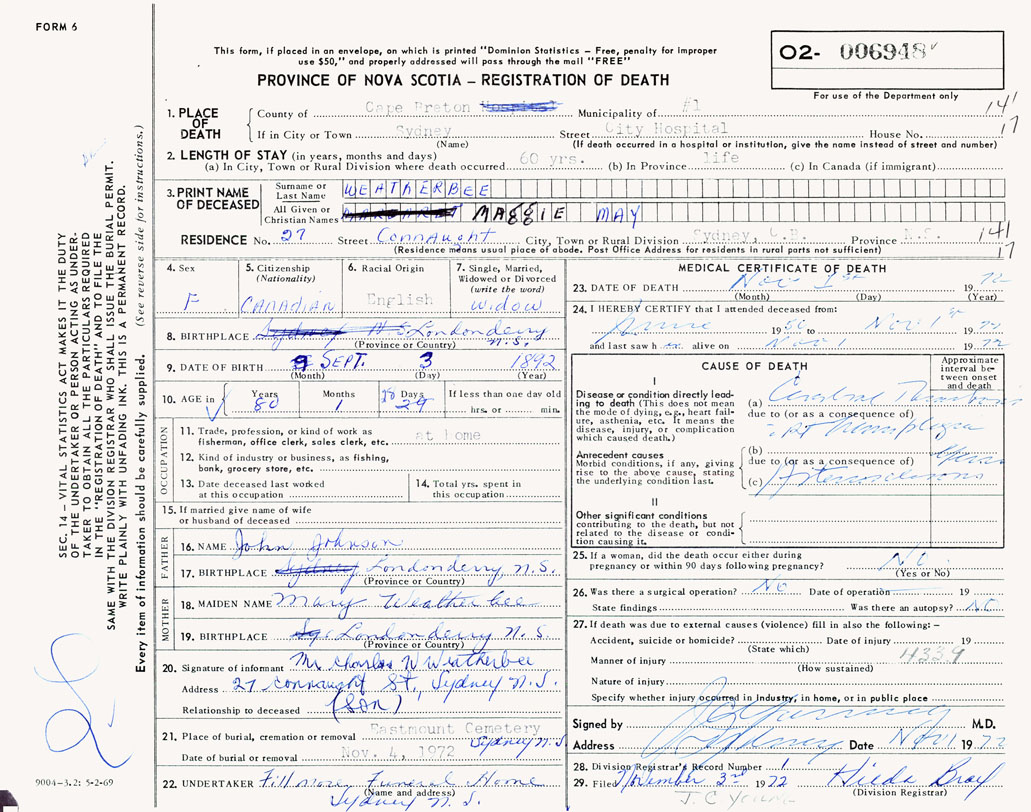 FORM 6
This form, if placed in an envelope, on which is printed "Dominion Statistics – Free, penalty for improper
use $50," and properly addressed will pass through the mail "FREE"
PROVINCE OF NOVA SCOTIA – REGISTRATION OF DEATH
O2- 006948
For use of the Department only
141
17
1. PLACE OF DEATH
County of Cape Breton Hospital Municipality of #1
If in City or Town Sydney Street City Hospital House No.
(Name) (If death occurred in a hospital or institution, give the name instead of street and number)
2. LENGTH OF STAY (in years, months and days)
(a) In City, Town or Rural Division where death occurred 60 yrs. (b) In Province life (c) In Canada (if immigrant)
3. PRINT NAME OF DECEASED
Surname or Last Name WEATHERBEE
All Given or Christian Names MAGGIE MAY
RESIDENCE No. 27 Street Connaught City, Town or Rural Division Sydney, C.B. Province N.S.
(Residence means usual place of abode. Post Office Address for residents in rural parts not sufficient)
141
17
4. Sex
F
5. Citizenship (Nationality)
CANADIAN
6. Racial Origin
English
7. Single, Married, Widowed or Divorced (write the word)
WIDOW
8. BIRTHPLACE Sydney N S Londonderry N.S.
(Province or Country)
9. DATE OF BIRTH SEPT. 3 1892
(Month) (Day) (Year)
10. AGE in Years 80 Months 1 Days 28 29 If less than one day old
hrs. or min.
OCCUPATION
11. Trade, profession, or kind of work as fisherman, office clerk, sales clerk, etc. at home
12. Kind of industry or business, as fishing, bank, grocery store, etc.
13. Date deceased last worked at this occupation
14. Total yrs. spent in this occupation
15. If married give name of wife or husband of deceased
FATHER
16. NAME John Johnson
17. BIRTHPLACE Sydney Londonderry, N.S.
(Province or Country)
MOTHER
18. MAIDEN NAME Mary Weatherbee
19. BIRTHPLACE Londonderry N.S.
(Province or Country)
20. Signature of informant Mr Charles W Weatherbee
Address 27 Connaught St, Sydney N.S.
Relationship to deceased (son)
21. Place of burial, cremation or removal Eastmount Cemetery
Sydney N.S.
Date of burial or removal Nov. 4, 1972
22. UNDERTAKER Fillmore Funeral Home
(Name and address)
Sydney N.S.
MEDICAL CERTIFICATE OF DEATH
23. DATE OF DEATH Nov 1st 1972
(Month) (Day) (Year)
24. I HEREBY CERTIFY that I attended deceased from:
June 1950 to Nov 1st 1972
and last saw h alive on Nov 1 1972
CAUSE OF DEATH
Approximate interval between onset and death
I
Disease or condition directly leading to death (This does not mean the mode of dying, e.g., heart failure, asthenia, etc. it means the disease, injury, or complication which caused death.)
(a) Cerebral Thrombosis
due to (or as a consequence of)
Rt Hemiplegia
Antecedent causes
Morbid conditions, if any, giving rise to the above cause, stating the underlying condition last.
(b)
due to (or as a consequence of)
(c) Arteriosclerosis
II
Other significant conditions contributing to the death, but not related to the disease or condition causing it.
25. If a woman, did the death occur either during pregnancy or within 90 days following pregnancy? No
(Yes or No)
26. Was there a surgical operation? No Date of operation 19
State findings Was there an autopsy? No
27. If death was due to external causes (violence) fill in also the following: –
Accident, suicide or homicide? Date of injury 19
(State which)
4339
Manner of injury
(How sustained)
Nature of injury
Specify whether injury occurred in Industry, in home, or in public place
Signed by M.D.
Address Sydney Date Nov 1 1972
28. Division Registrar's Record Number 1
29. Filed November 3rd 1972 Hilda
(Division Registrar)
SEC. 14 – VITAL STATISTICS ACT MAKES IT THE DUTY
OF THE UNDERTAKER OR PERSON ACTING AS UNDER-
TAKER TO OBTAIN ALL THE PARTICULARS REQUIRED
IN THE "REGISTRATION OF DEATH" AND TO FILE THE
SAME WITH THE DIVISION REGISTRAR WHO SHALL ISSUE THE BURIAL PERMIT.
WRITE PLAINLY WITH UNFADING INK. THIS IS A PERMANENT RECORD.
Every item of information should be carefully supplied. (See reverse side for instructions.)
9004-3.2: 5-2-69